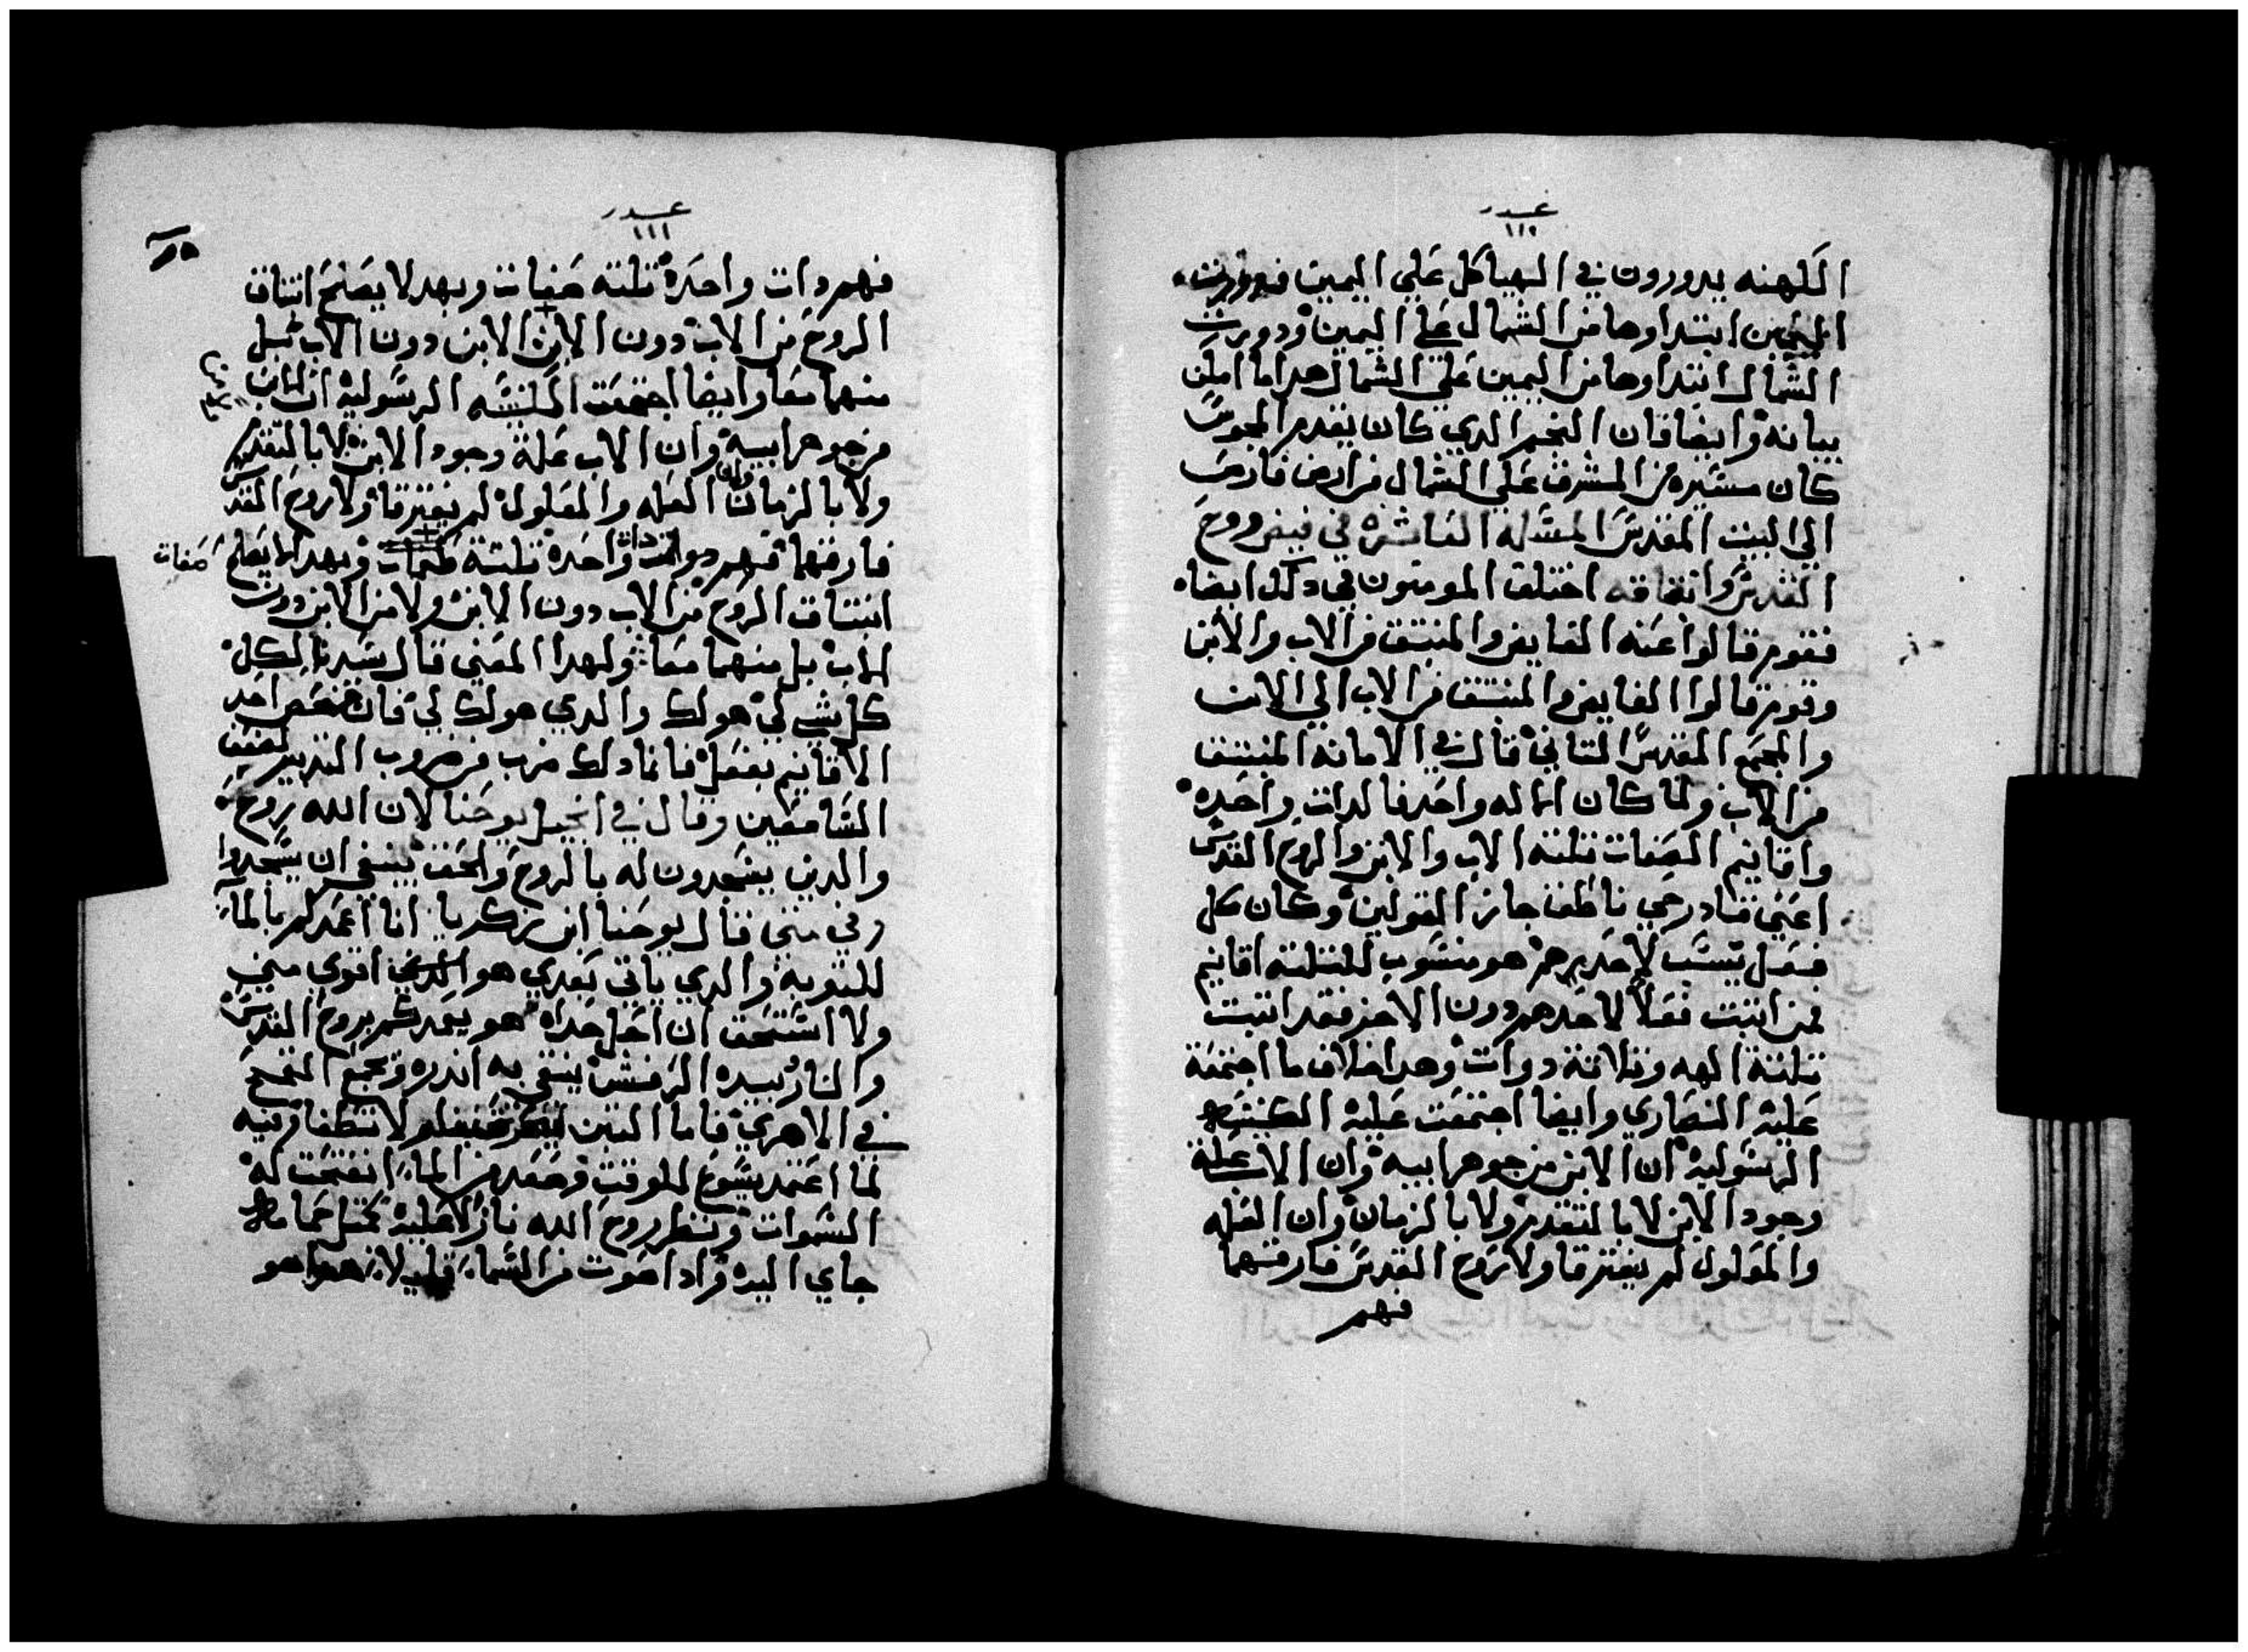 عدد
١١٠
الكهنه يدورون في الهياكل علي اليمين فدورت
اليمين ابتداوها من الشمال علي اليمين ودورت
الشمال ابتداوها من اليمين علي الشمال هدا ما امكن
بيانه وايضا فان النجم الدي كان يقدم المجوس
كان مسيره من المشرق علي الشمال من ارض فارس
الي البيت المقدس المسله العاشره في فيض روح
القدس وانتفاقه اختلف المومنون في دلك ايضا
فقوم قالوا عنه الفايض والمنبتق من الاب والابن
وقوم قالوا الفايض والمنبتق من الاب الي الابن
والمجمع المقدس التاني قال في الامانه المنبتق
من الاب ولما كان الاله واحد فالدات واحده
واقانيم الصفات تلته الاب والابن والروح القدس
اعني قادر حي ناطق جاز القولين وكان كل
فعل ينسب لاحدهم هو منسوب للتلته اقانيم
فمن اتبت فعلا لاحدهم دون الاخر فقد اتبت
تلتة الهه وتلاتة دوات وهدا خلاف ما اجتمعة
عليه النصاري وايضا اجتمعت عليه الكنيسه
الرسوليه ان الابن من جوهر ابيه وان الاب علة
وجود الابن لا بالتقدم ولا بالزمان وان العله
والمعلول لم يفترقا ولا روح القدس فارقهما
فهم
عدد
١١١
فهم دات واحده تلته صفات وبهدا لا يصح انبتاق
الروح من الاب دون الابن الابن دون الاب بل
منهما معا وايضا اجتمعت الكنيسه الرسوليه ان الابن
من جوهر ابيه وان الاب علة وجود الابن لا بالتقدم
ولا بالزمان وان العله والمعلول لم يفترقا ولا روح القدس
فارقهما فهم دات واحده تلتة وبهدا لا يصح
صفات
انبتاق الروح من الاب دون الابن ولا من الابن دون
الاب بل منهما معا ولهدا المعني قال سيدنا لكل
كل شي لي هو لك والدي هو لك لي فان خصص احد
الاقانيم بفعل فانما دلك ضرب من ضروب التدبير
السامعين وقال في انجيل يوحنا لان الله روح
والدين يسجدون له بالروح والحق ينبغي ان يسجدوا
وفي متي قال يوحنا ابن زكريا انا اعمدكم بالماء
للتوبه والدي ياتي بعدي هو اقوي مني
ولا استحق ان احل حداه هو يعمدكم بروح القدس
والنار بيده الرفش ينقي به اندره ويجمع القمح
في الاهري فاما التبن لا تطفا وفيه
لما اعتمد يسوع للوقت وصعد من الماء انفتحت له
السموات ونظر روح الله نازلا عليه كمتل حمامه
جاي اليه وادا صوت من السماء قايلا هدا هو